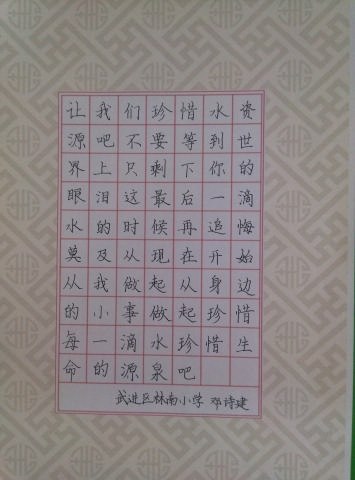 让我们珍惜水资
源吧不要等到世
界上只剩下你的
眼泪这最后一滴
水的时候再追悔
莫及从现在开始
从我做起从身边
的小事做起珍惜
每一滴水珍惜生
命的源泉吧
武进区林南小学 邓诗建